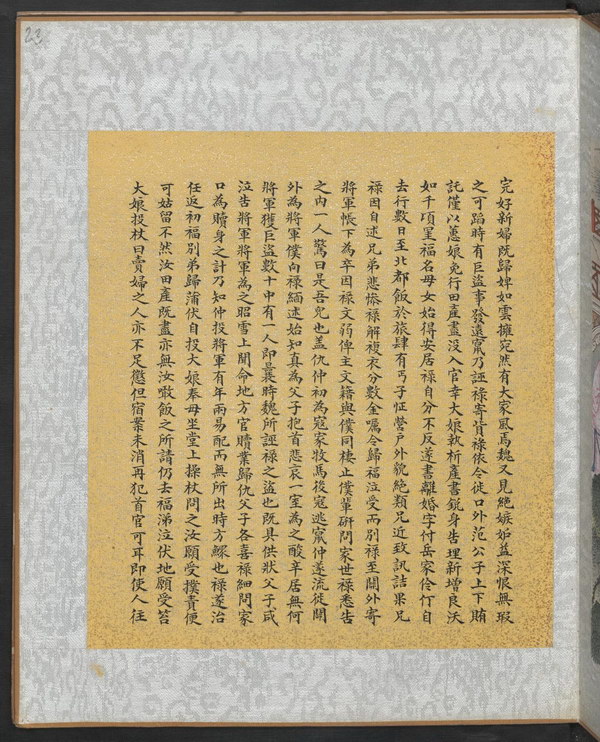 23
完好新婦既歸婢如雲擁宛然有大家風焉魏又見絕嫉妒益深恨無瑕
之可蹈時有巨盜事發遠竄乃誣祿寄貲祿依令徙口外范公子上下賄
託僅以蕙娘免行田產盡沒入官幸大娘執析產書銳身告理新增良沃
如千頃里福名母女始得安居祿自分不反遂書離婚字付岳家伶仃自
去行數日至北都飯於旅肆有丐子怔營戶外貌絕類兄近致訊詰果兄
祿因自述兄弟悲慘祿解複衣分數金囑令歸福泣受而別祿至關外寄
將軍帳下為卒因祿文弱俾主文籍與僕同棲止僕輩研問家世祿悉告
之內一人驚曰是吾兒也蓋仇仲初為寇家牧馬後寇逃竄仲遂流徙關
外為將軍僕向祿緬述始知真為父子抱首悲哀一室為之酸辛居無何
將軍獲巨盜數十中有一人即曩時魏所誣祿之盜也既具供狀父子咸
泣告將軍將軍為之昭雪上聞命地方官贖業歸仇父子各喜祿細問家
口為贖身之計乃知仲投將軍有年兩易配而無所出時方鰥也祿遂治
任返初福別弟歸蒲伏自投大娘奉母坐堂上操杖問之汝願受撲責便
可姑留不然汝田產既盡亦無汝噉飯之所請仍去福涕泣伏地願受笞
大娘投杖曰賣婦之人亦不足懲但宿案未消再犯首官可耳即使人往